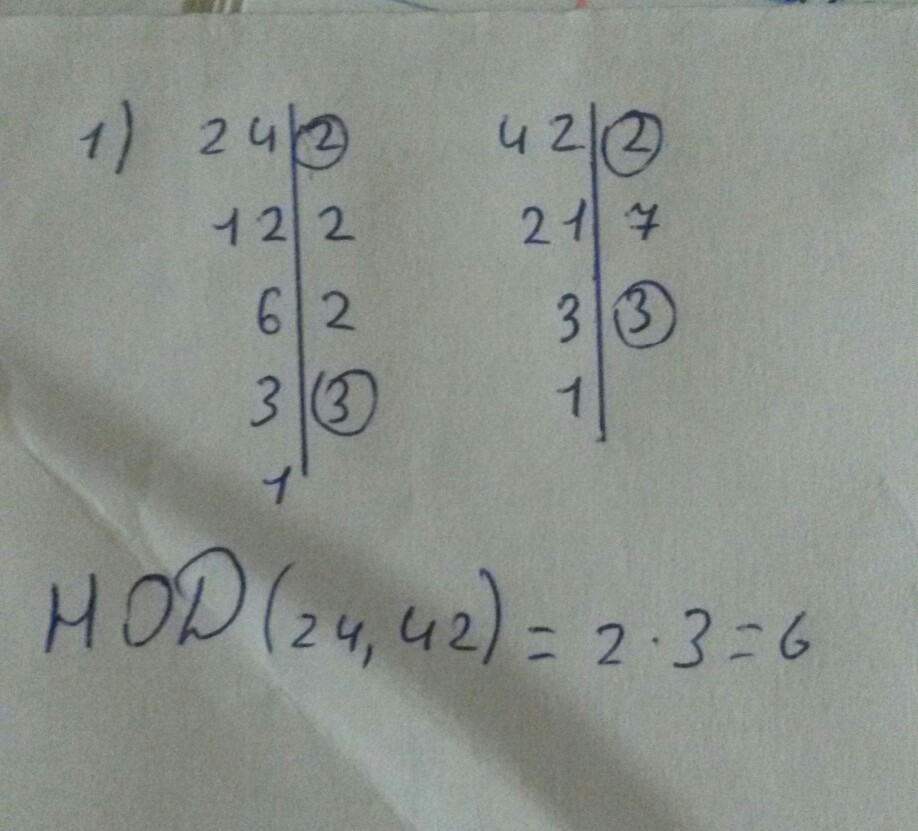 1) 24|2 42|2
12|2 21|7
6|2 3|3
3|3 1|
1
НОД(24, 42) = 2 · 3 = 6